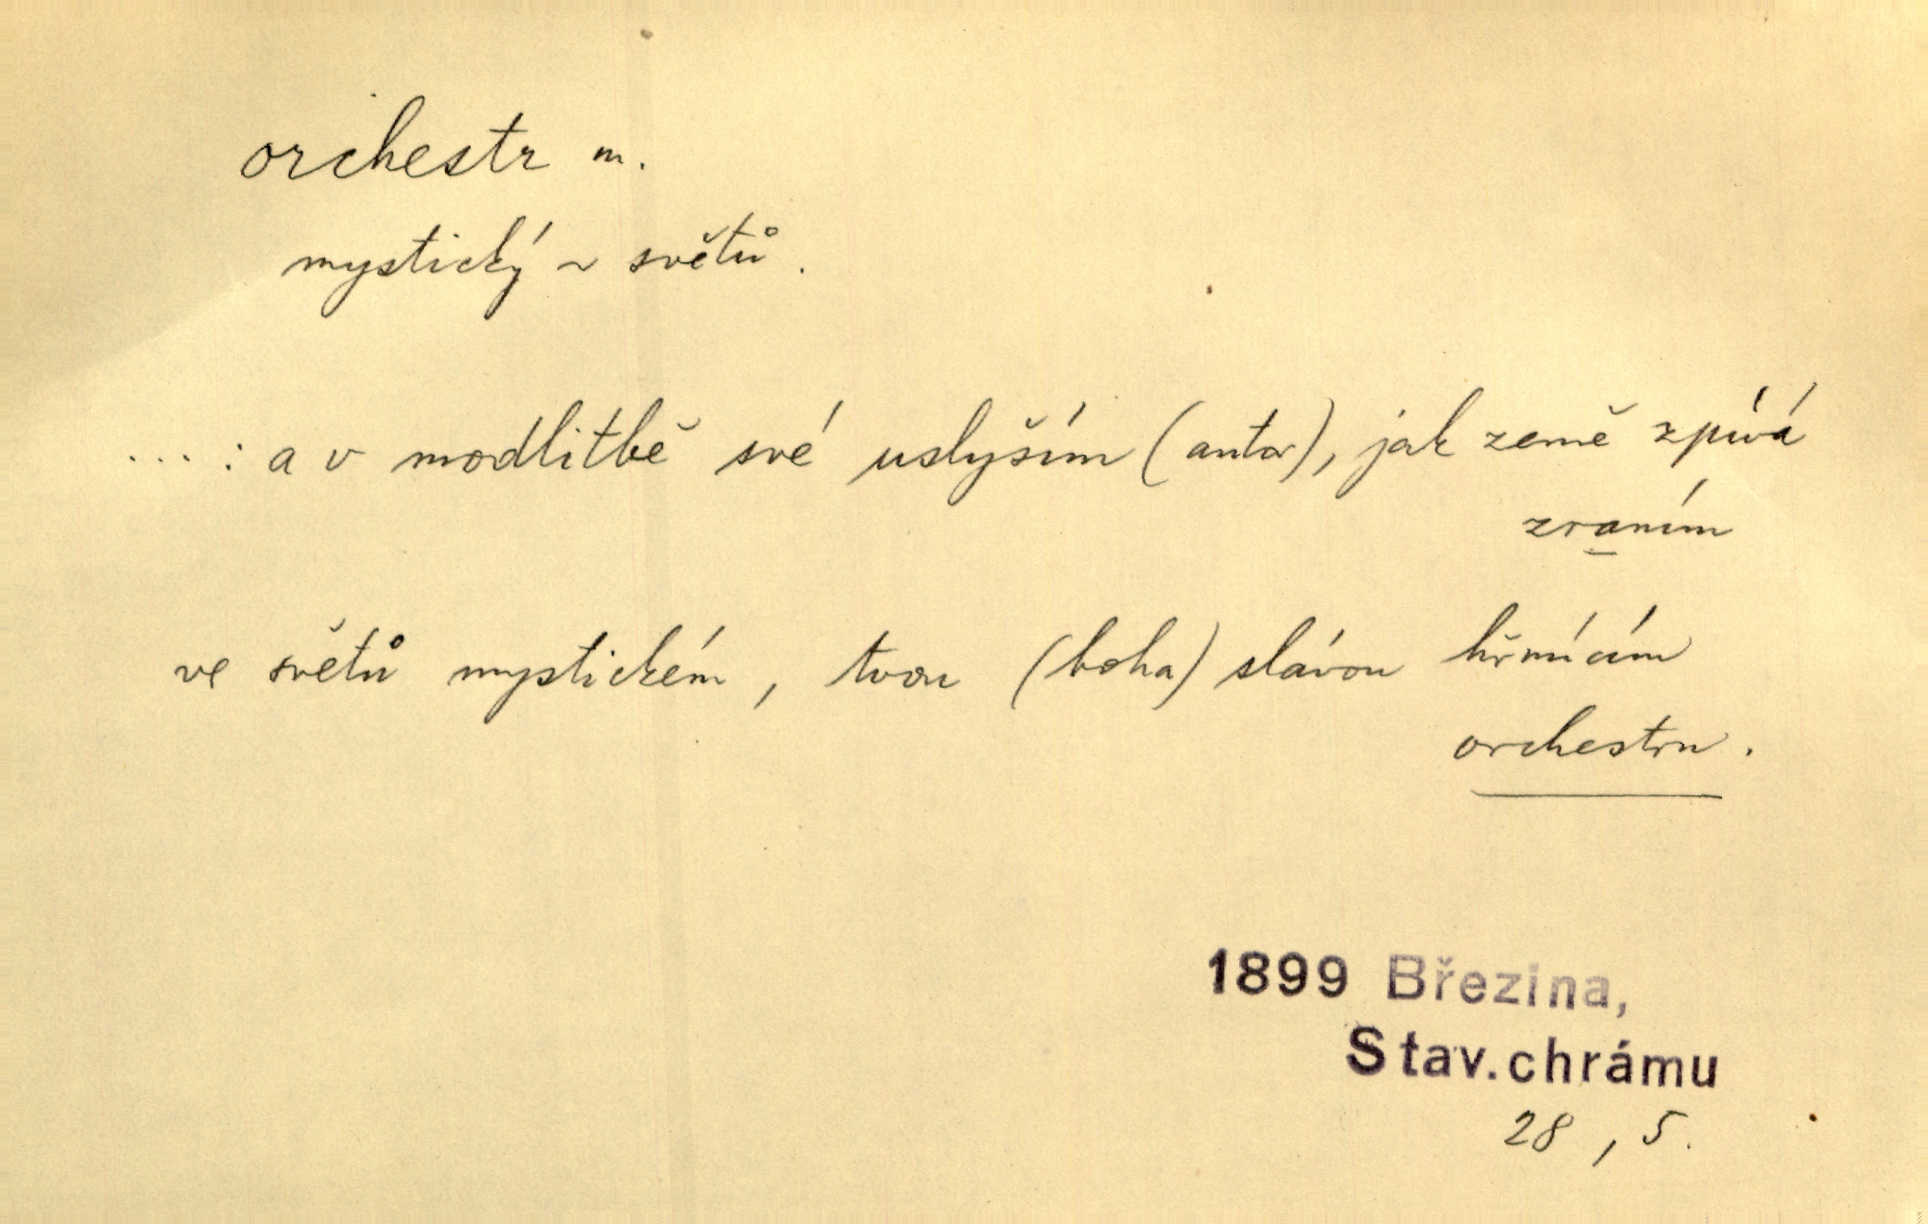 orchestr m.
mystický ~ světů.
... : a v modlitbě své uslyším (autor), jak země zpívá
zraním
ve světů mystickém, tvou (boha) slávou hřmícím
orchestru.
1899 Březina,
Stav. chrámu
28, 5.